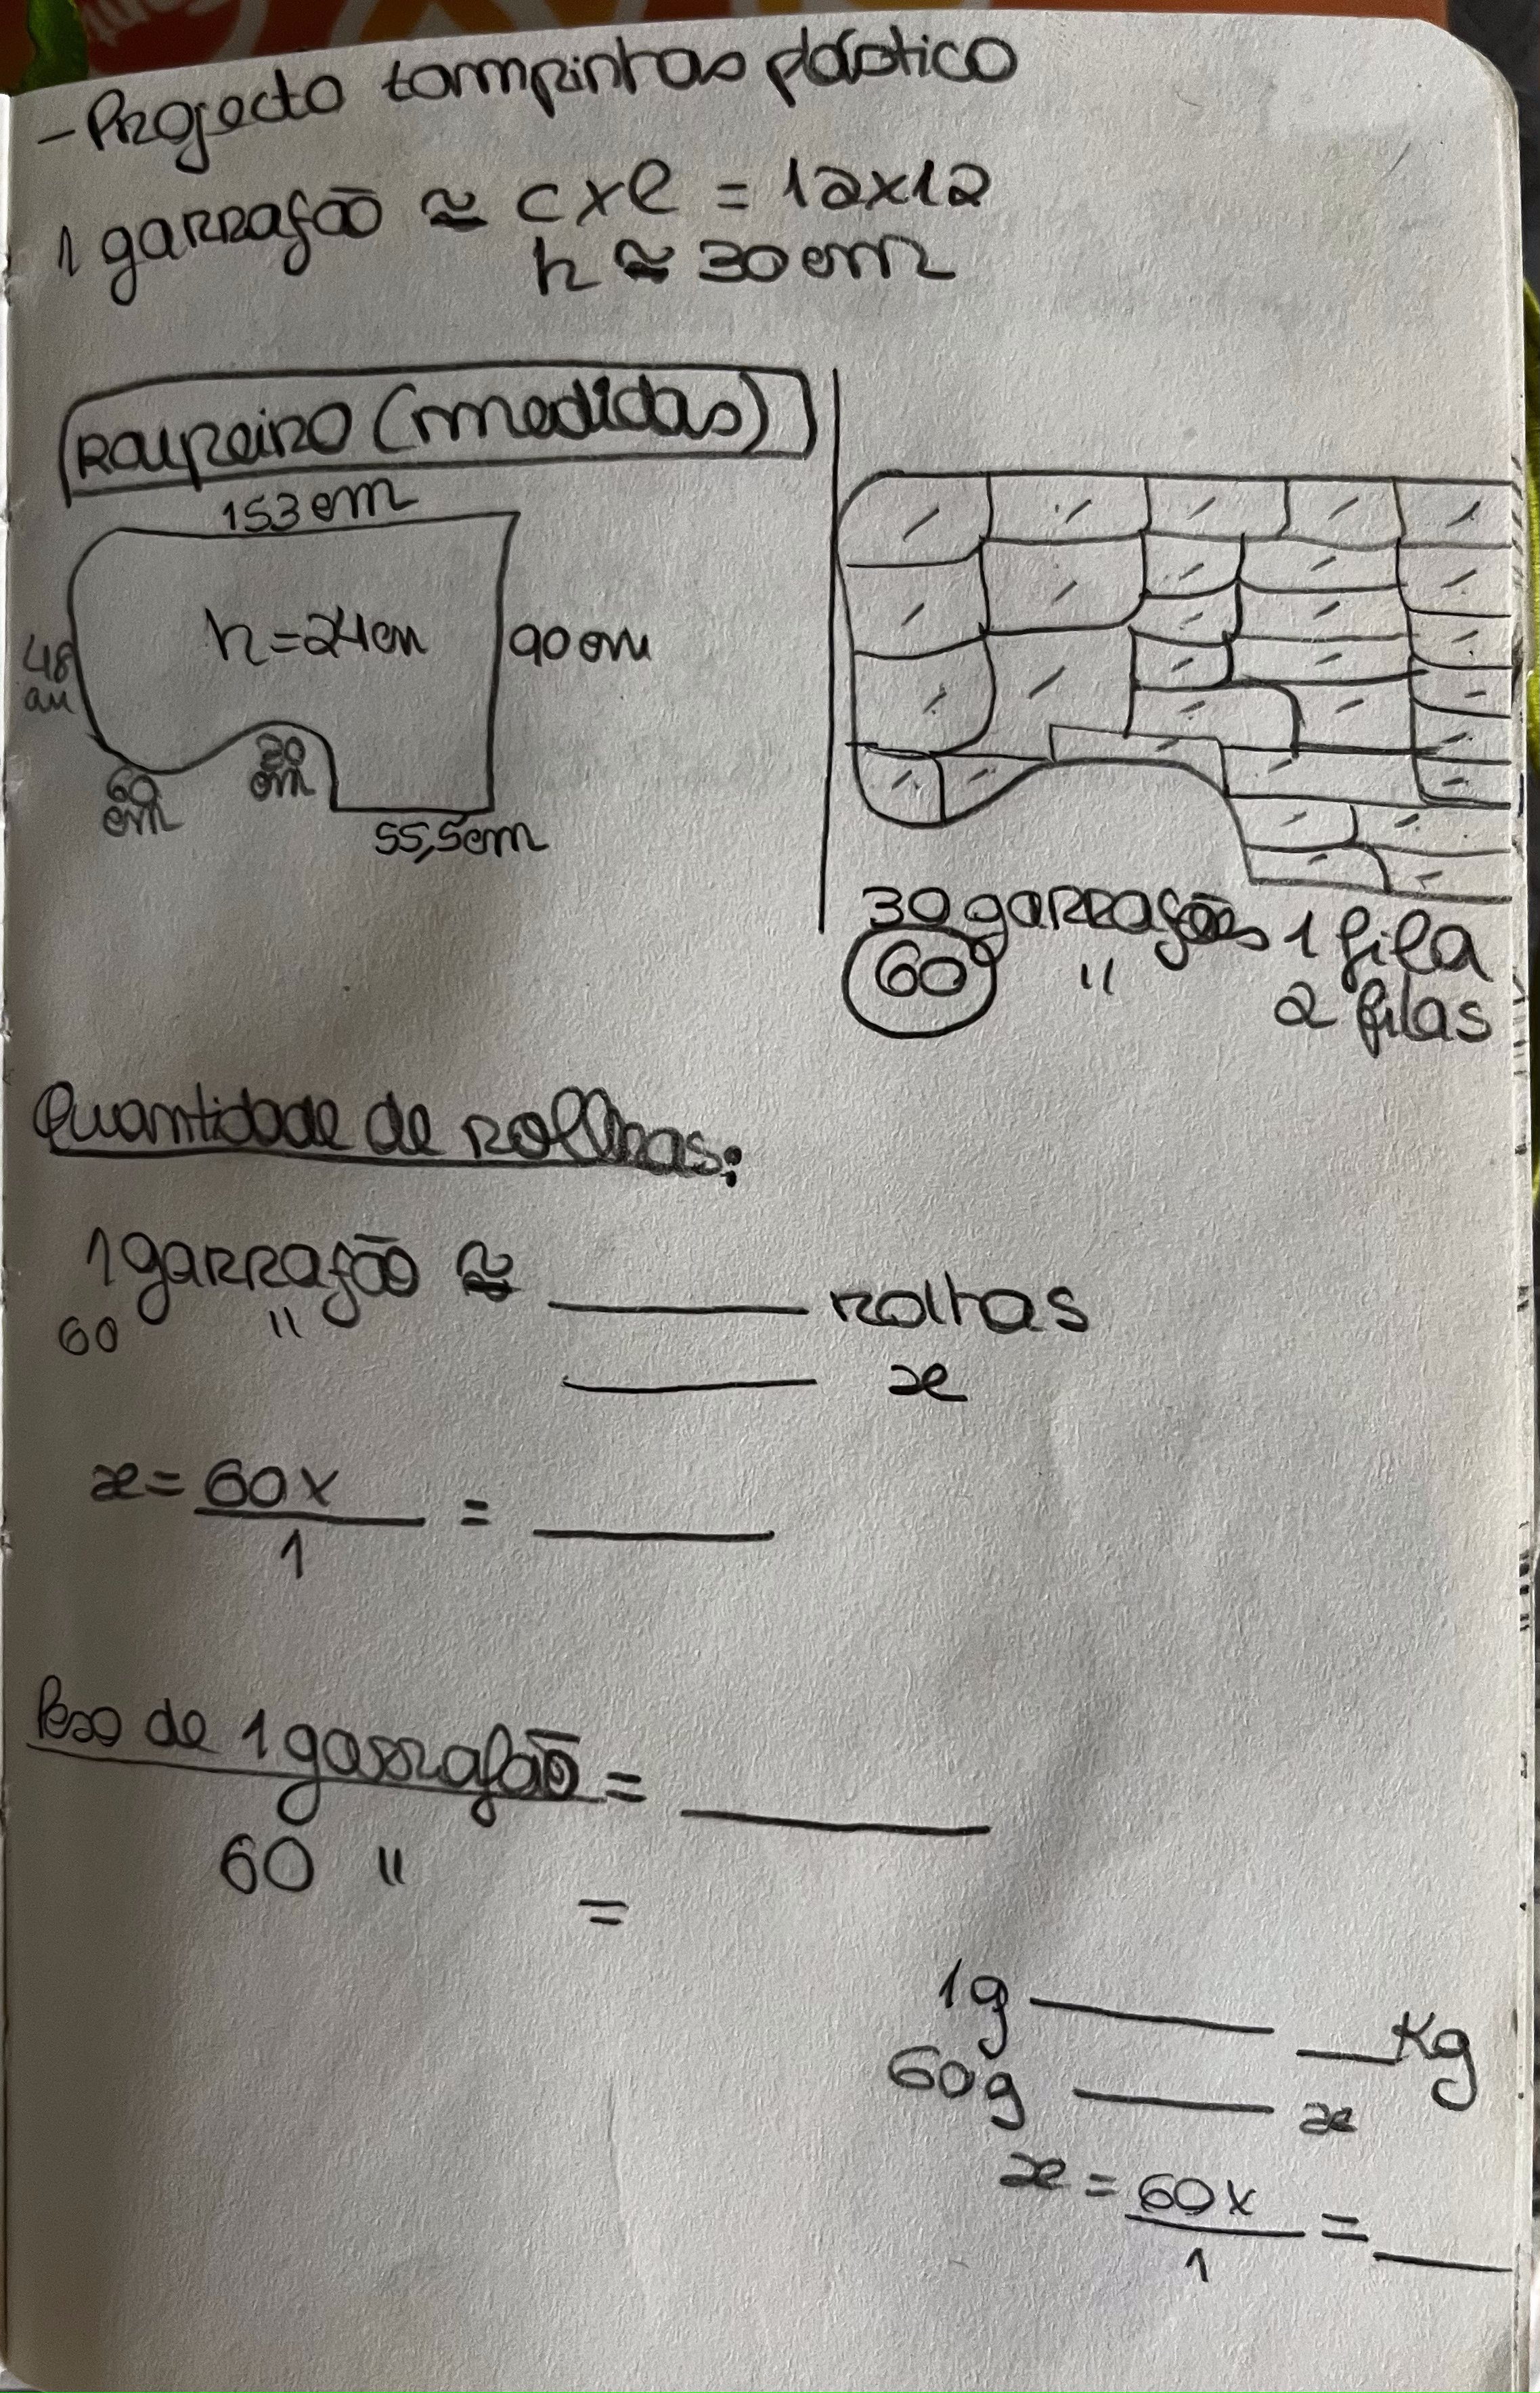 - Projecto tampinhas plástico
1 garrafão ≅ c x l = 12x12
h ≅ 30 cm
Roupeiro (medidas)
153 cm
h = 24 cm
90 cm
48
cm
60
cm
30
cm
55,5cm
30 garrafões 1 fila
60 " 2 filas
Quantidade de rolhas:
1 garrafão ≅ ____ rolhas
60 " ____ x
x = 60 x / 1 = ____
Peso de 1 garrafão = ____
60 " =
1g ____ __ Kg
60g ____ x
x = 60 x / 1 = ____